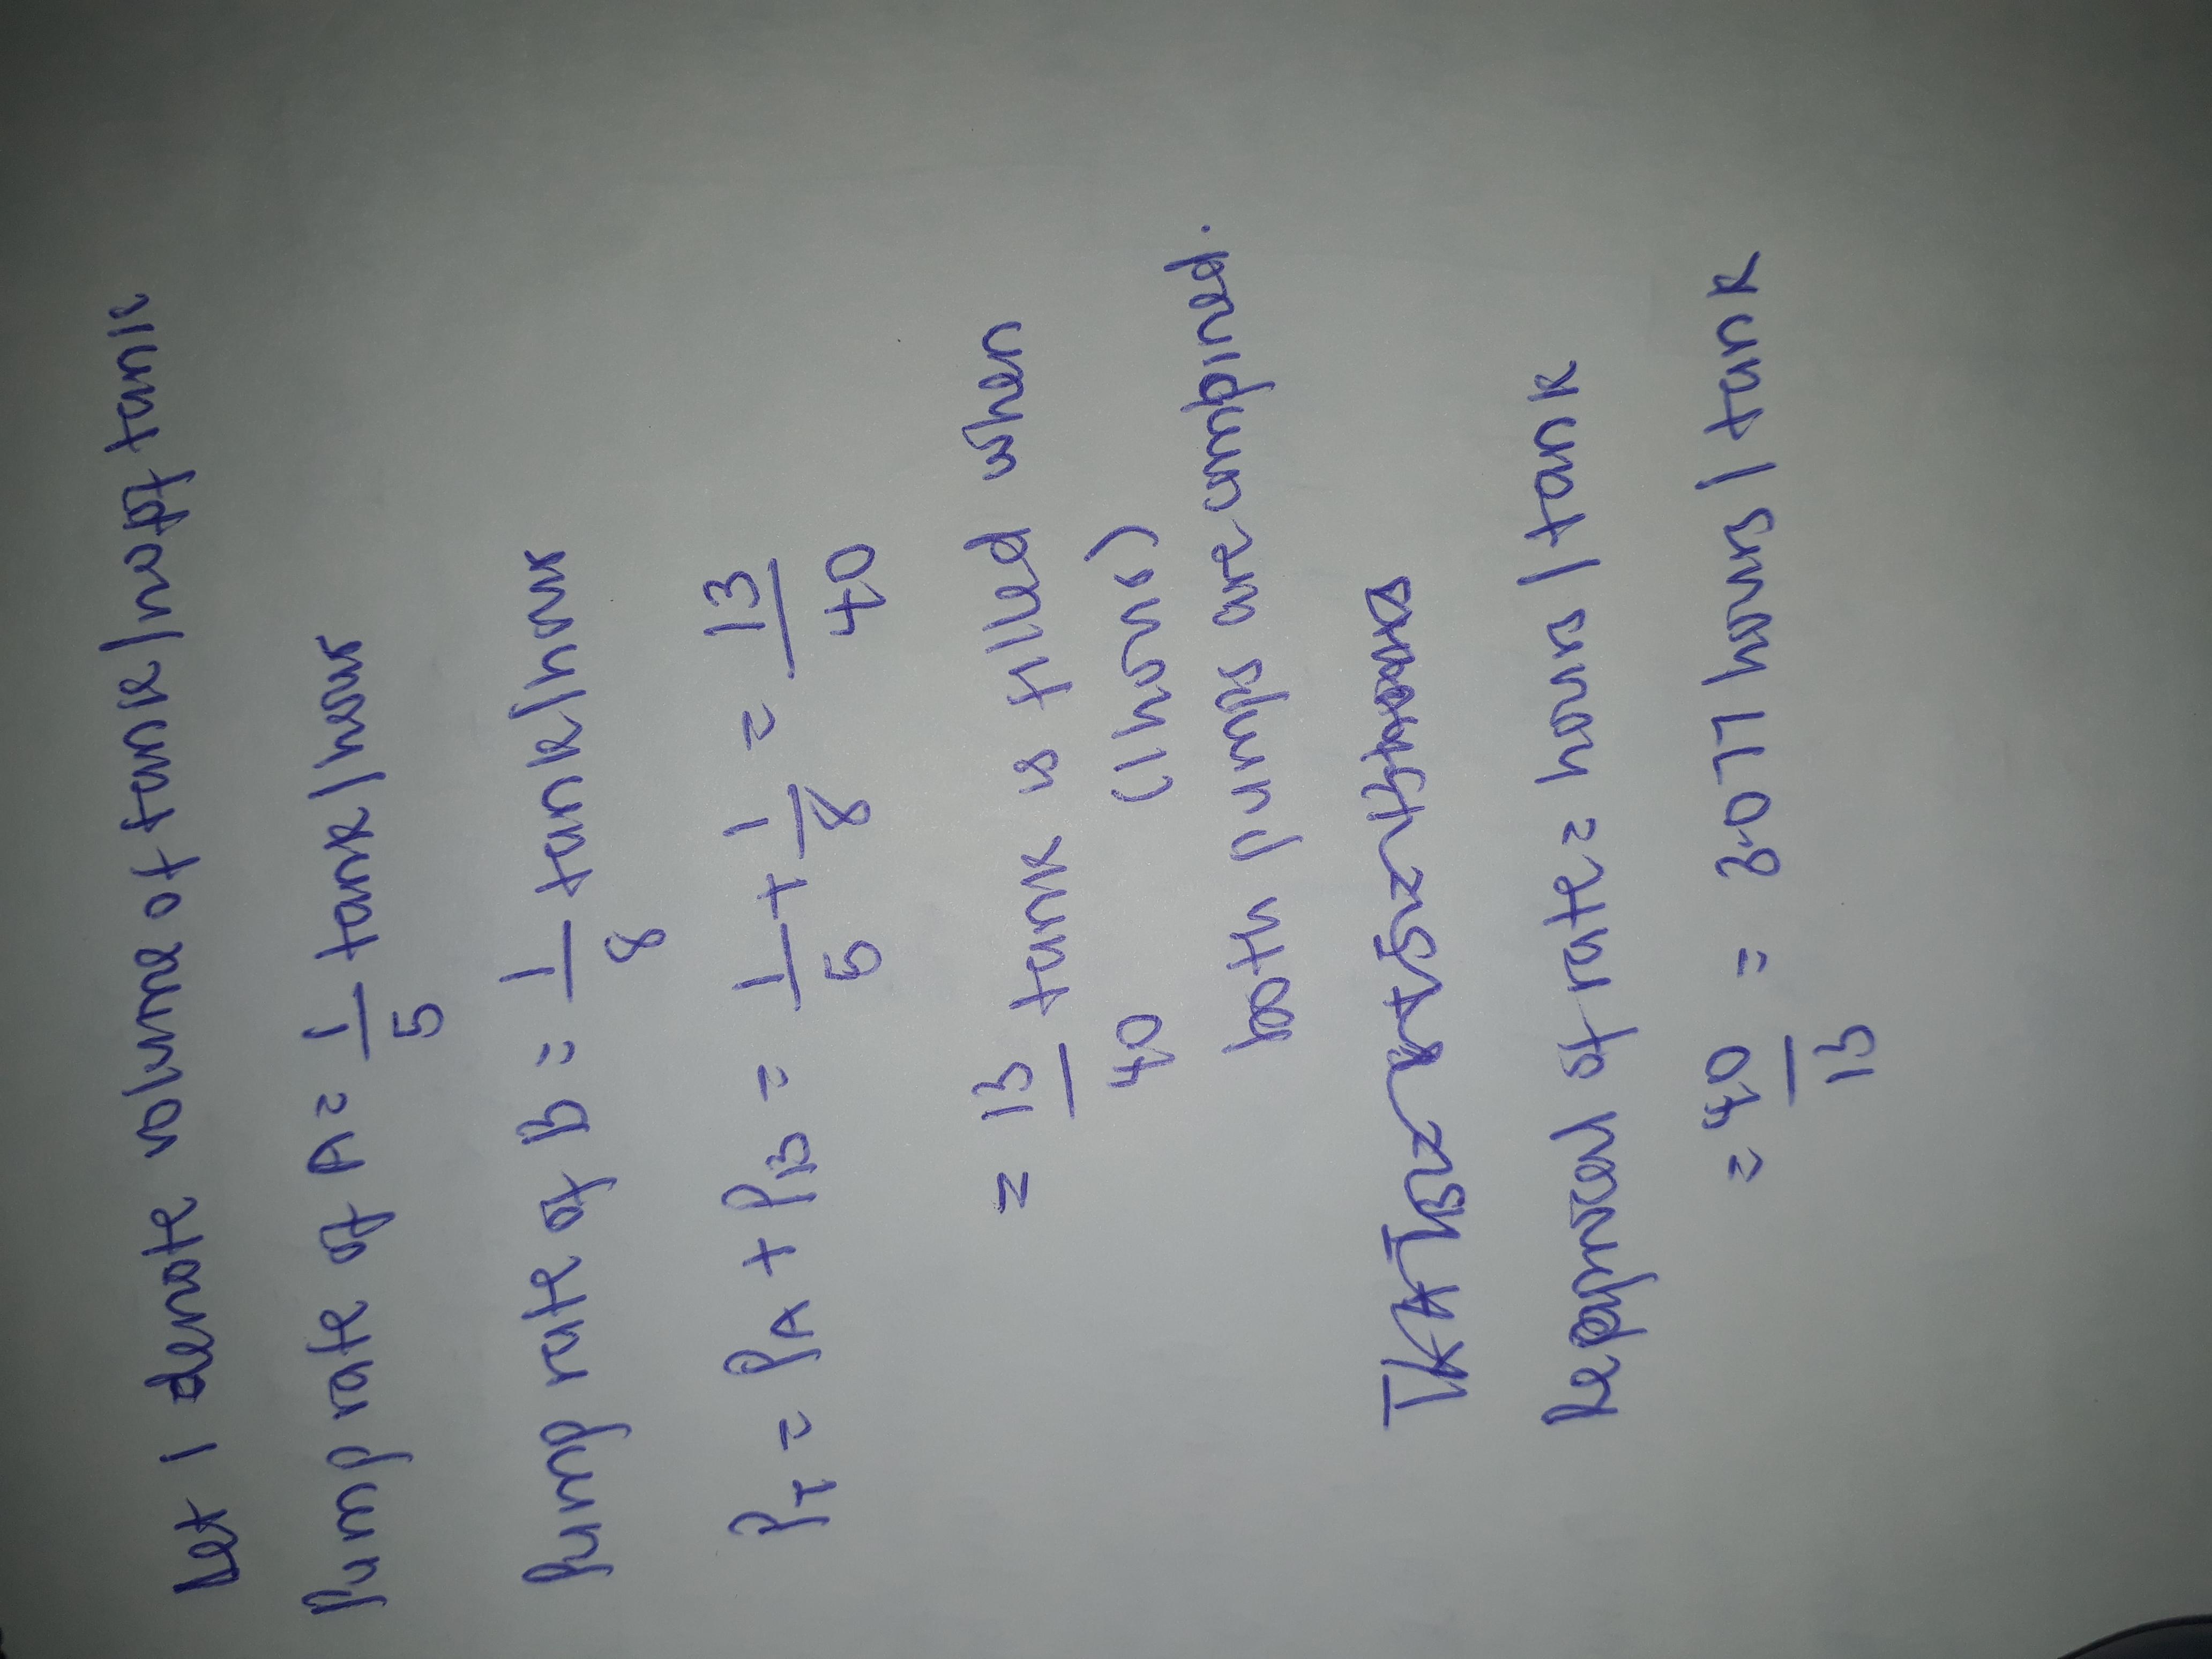 Let 1 denote volume of tank/hapt tank
Pump rate of A = 1/5 tank/hour
Pump rate of B = 1/8 tank/hour
PT = PA + PB = 1/5 + 1/8 = 13/40
= 13/40 tank is filled when
(1 hour)
both pumps are combined.
Reciprocal of rate = hours / tank
= 40/13 = 3.077 hours / tank